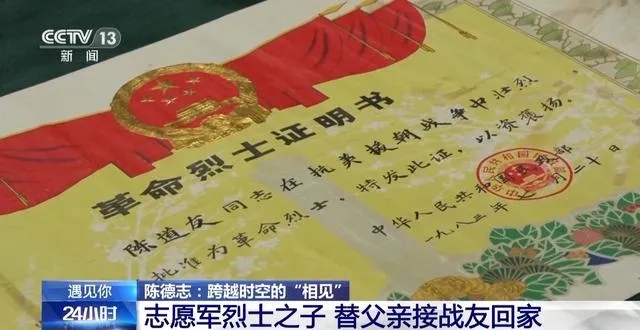 CCTV 13
新闻
革命烈士证明书
陈道友同志在抗美援朝战争中壮烈
批准为革命烈士，特发此证，以资褒扬。
中华人民共和国民政部
一九八三年
二十日
遇见你
24小时
陈德志：跨越时空的“相见”
志愿军烈士之子 替父亲接战友回家